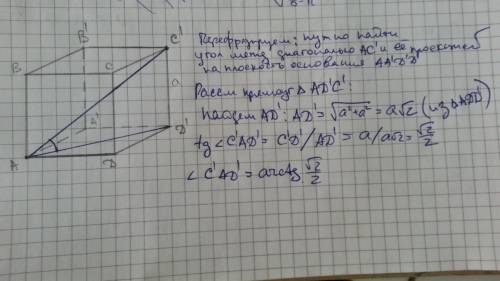 B'
C'
B
C
a
A'
D'
A
D
Перефразируем: нужно найти
угол между диагональю AC' и её проекцией
на плоскость основания AA'D'D
Рассм прямоуг △ AD'C':
Найдём AD': AD' = √a²+a² = a√2 (из △ADD')
tg ∠C'AD' = C'D'/AD' = a/a√2 = √2/2
∠C'AD' = arctg √2/2